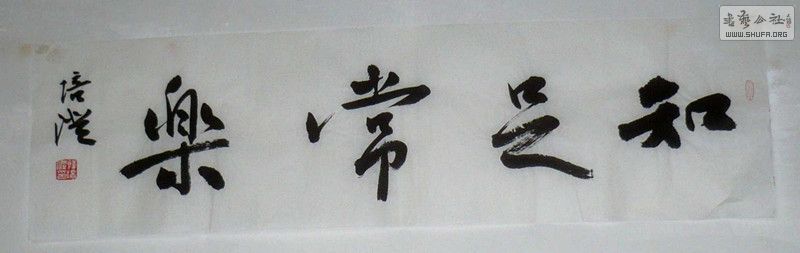 知足常樂
培澄
書藝公社
WWW.SHUFA.ORG